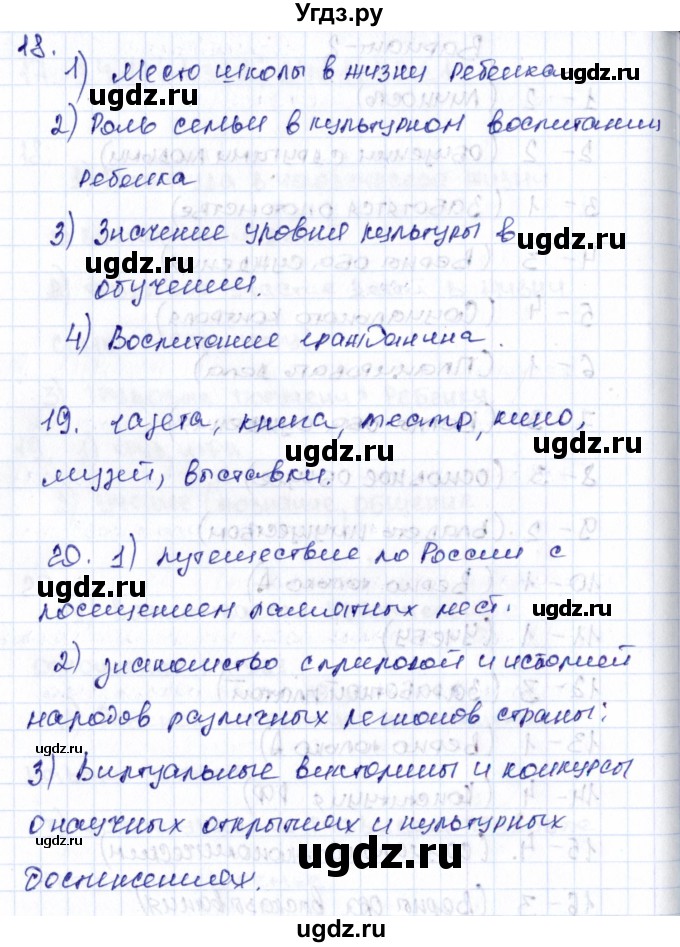 Угдз.ру
18.
1) Место школы в жизни ребенка
ugdz.ru
ugdz.ru
2) Роль семьи в культурном воспитании
ребенка
3) Значение уровня культуры в
ugdz.ru
ugdz.ru
обучении.
4) Воспитание гражданина.
19. газета, книга, театр, кино,
ugdz.ru
музей, выставки.
ugdz.ru
20. 1) путешествие по России с
ugdz.ru
посещением памятных мест.
ugdz.ru
2) знакомство с природой и историей
ugdz.ru
народов различных регионов страны:
ugdz.ru
3) Виртуальные викторины и конкурсы
о научных открытиях и культурных
ugdz.ru
достижениях.
ugdz.ru